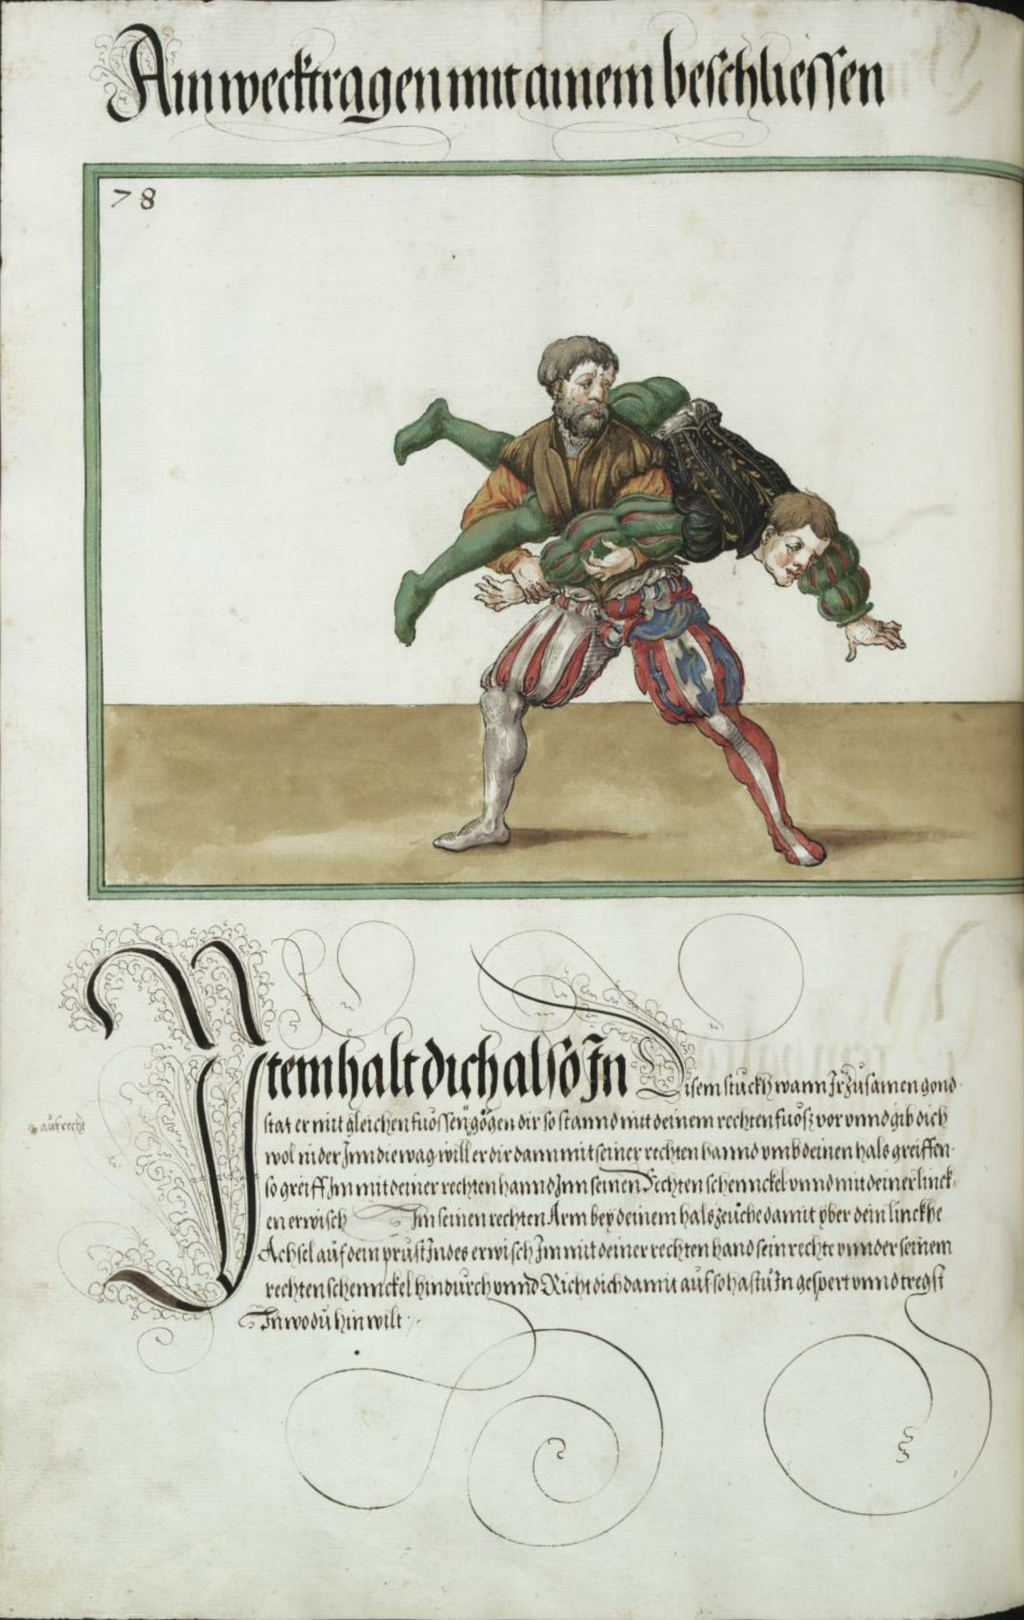 Ain wecktragen mit ainem beschliessen
78
Item halt dich also In Disem stuckh wann Ir zusamen gond
aufrecht
stat er mit gleichen fuossen gögen dir so stannd mit deinem rechten fuosz vor vnnd gib dich
wol nider Inn die wag will er dir dann mit seiner rechten hannd vmb deinen hals greiffen
so greiff Im mit deiner rechten hannd Inn seinen Rechten schennckel vnnd mit deiner linck-
en erwisch Im seinen rechten Arm bey deinem hals zeuche damit yber dein linckhe
Achsel auf dein prust Indes erwisch Im mit deiner rechten hand sein rechte vnnder seinem
rechten schennckel hindurch vnnd Richt dich damit auf so hastu In gespert vnnd tregst
In wo du hin wilt